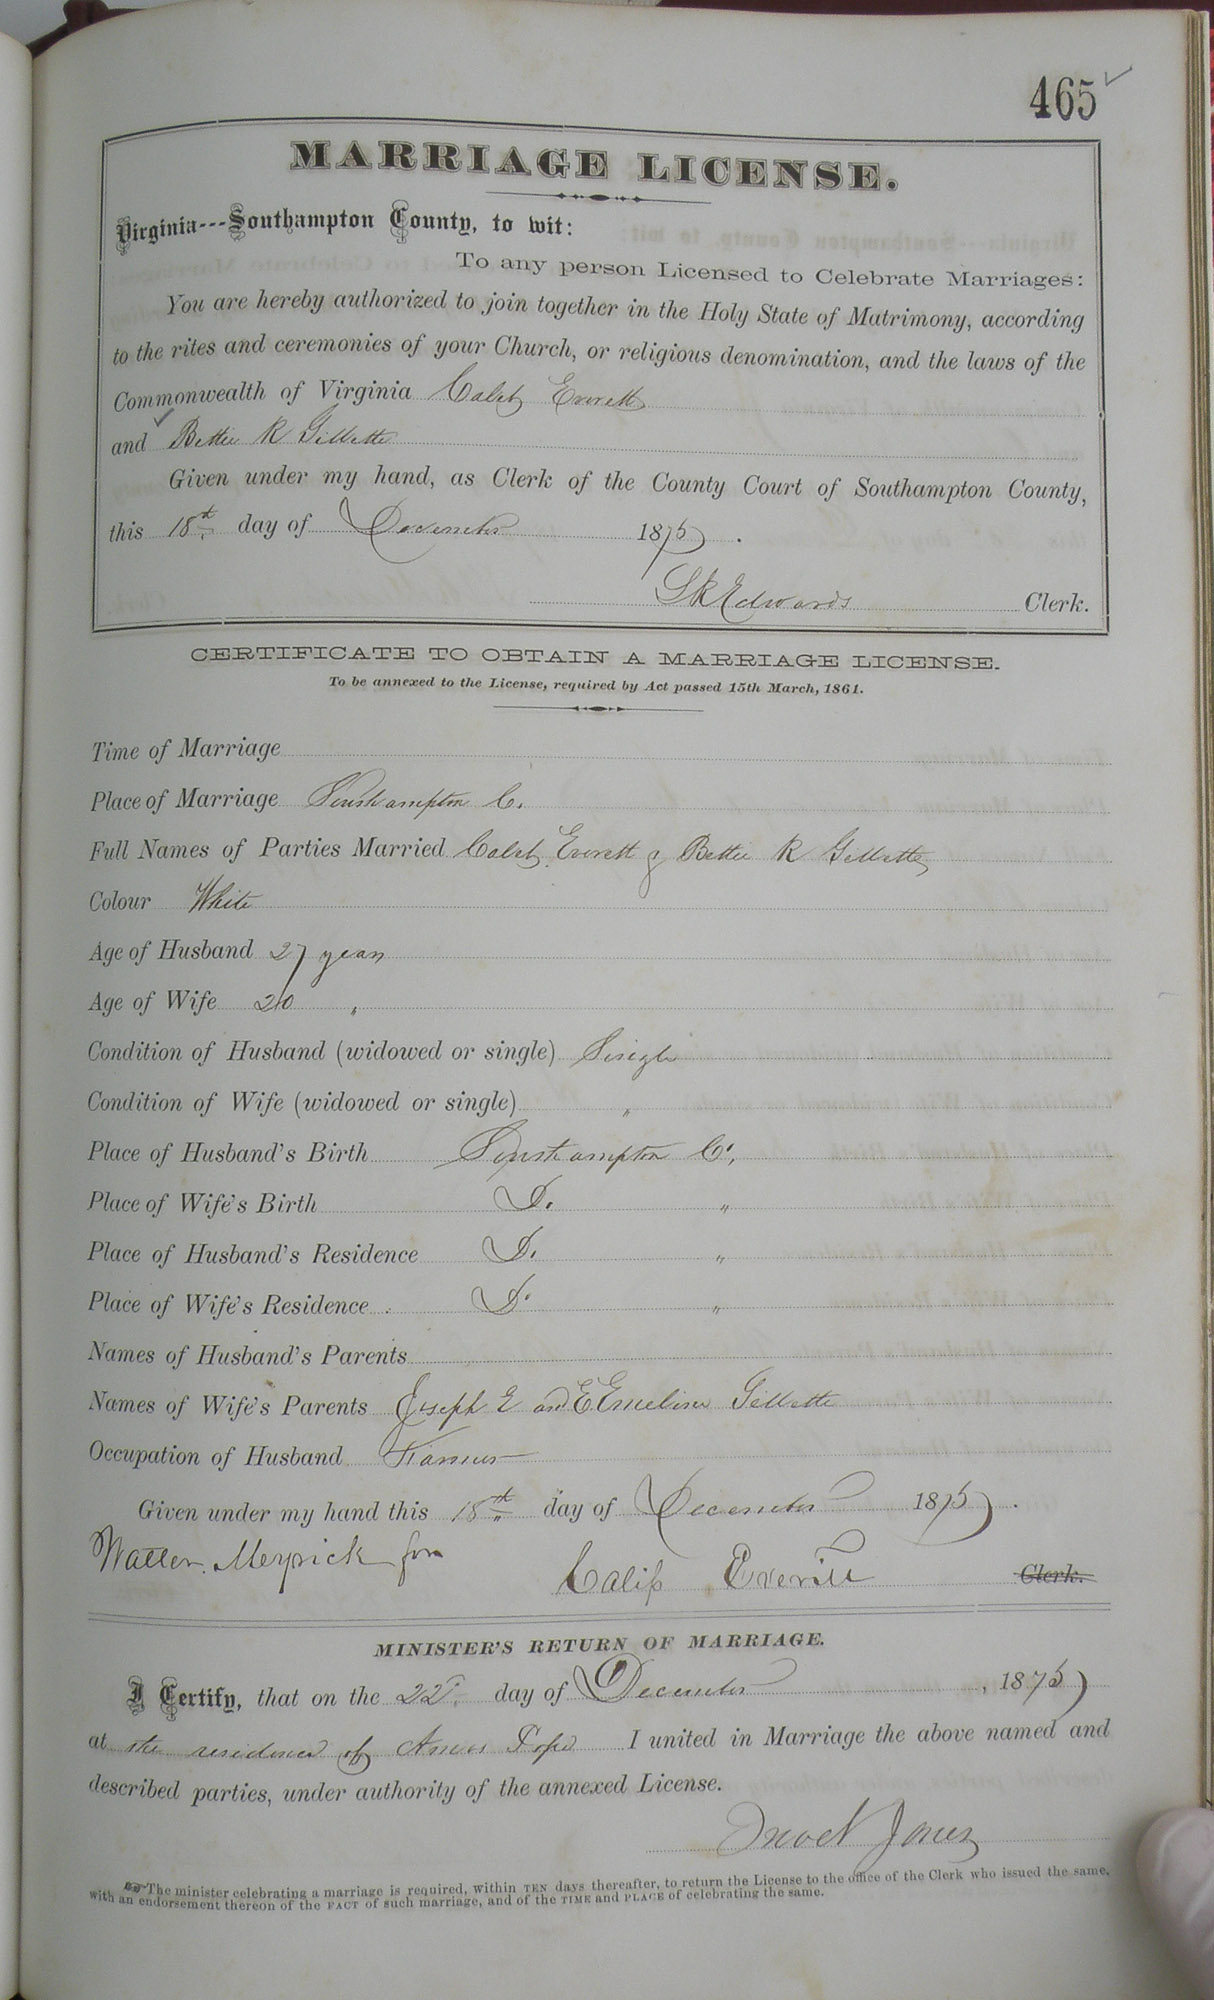 465
MARRIAGE LICENSE.
Virginia---Southampton County, to wit:
To any person Licensed to Celebrate Marriages:
You are hereby authorized to join together in the Holy State of Matrimony, according
to the rites and ceremonies of your Church, or religious denomination, and the laws of the
Commonwealth of Virginia Caleb Everett
and Bettie R Gillette
Given under my hand, as Clerk of the County Court of Southampton County,
this 18th day of December 1875.
L R Edwards Clerk.
CERTIFICATE TO OBTAIN A MARRIAGE LICENSE.
To be annexed to the License, required by Act passed 15th March, 1861.
Time of Marriage
Place of Marriage Southampton Co.
Full Names of Parties Married Caleb Everett & Bettie R Gillette
Colour White
Age of Husband 27 years
Age of Wife 20 "
Condition of Husband (widowed or single) Single
Condition of Wife (widowed or single) "
Place of Husband's Birth Southampton Co.
Place of Wife's Birth Do. "
Place of Husband's Residence Do. "
Place of Wife's Residence Do. "
Names of Husband's Parents
Names of Wife's Parents Joseph E and E Emeline Gillette
Occupation of Husband Farmer
Given under my hand this 18th day of December 1875.
Walter Meyrick for
Everitt Clerk.
MINISTER'S RETURN OF MARRIAGE.
I Certify, that on the 22d day of December, 1875
at the residence of Pope I united in Marriage the above named and
described parties, under authority of the annexed License.
Jones
The minister celebrating a marriage is required, within TEN days thereafter, to return the License to the office of the Clerk who issued the same,
with an endorsement thereon of the FACT of such marriage, and of the TIME and PLACE of celebrating the same.